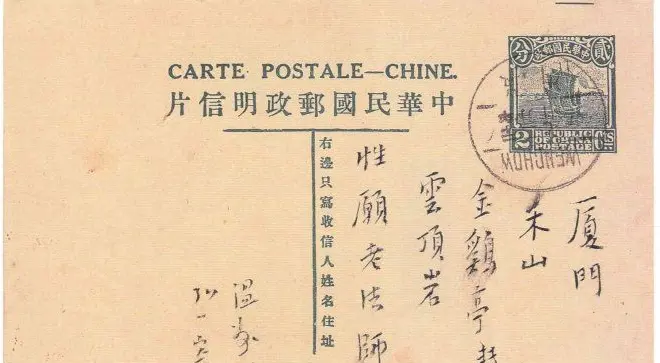 CARTE POSTALE—CHINE.
片信明政郵國民華中
分 中華民國郵政 貳
2 REPUBLIC OF CHINA POSTAGE CTS
WENCHOW
右邊只寫收信人姓名住址
廈門
禾山
金鷄亭
雲頂岩
性願老法師
溫
弘一